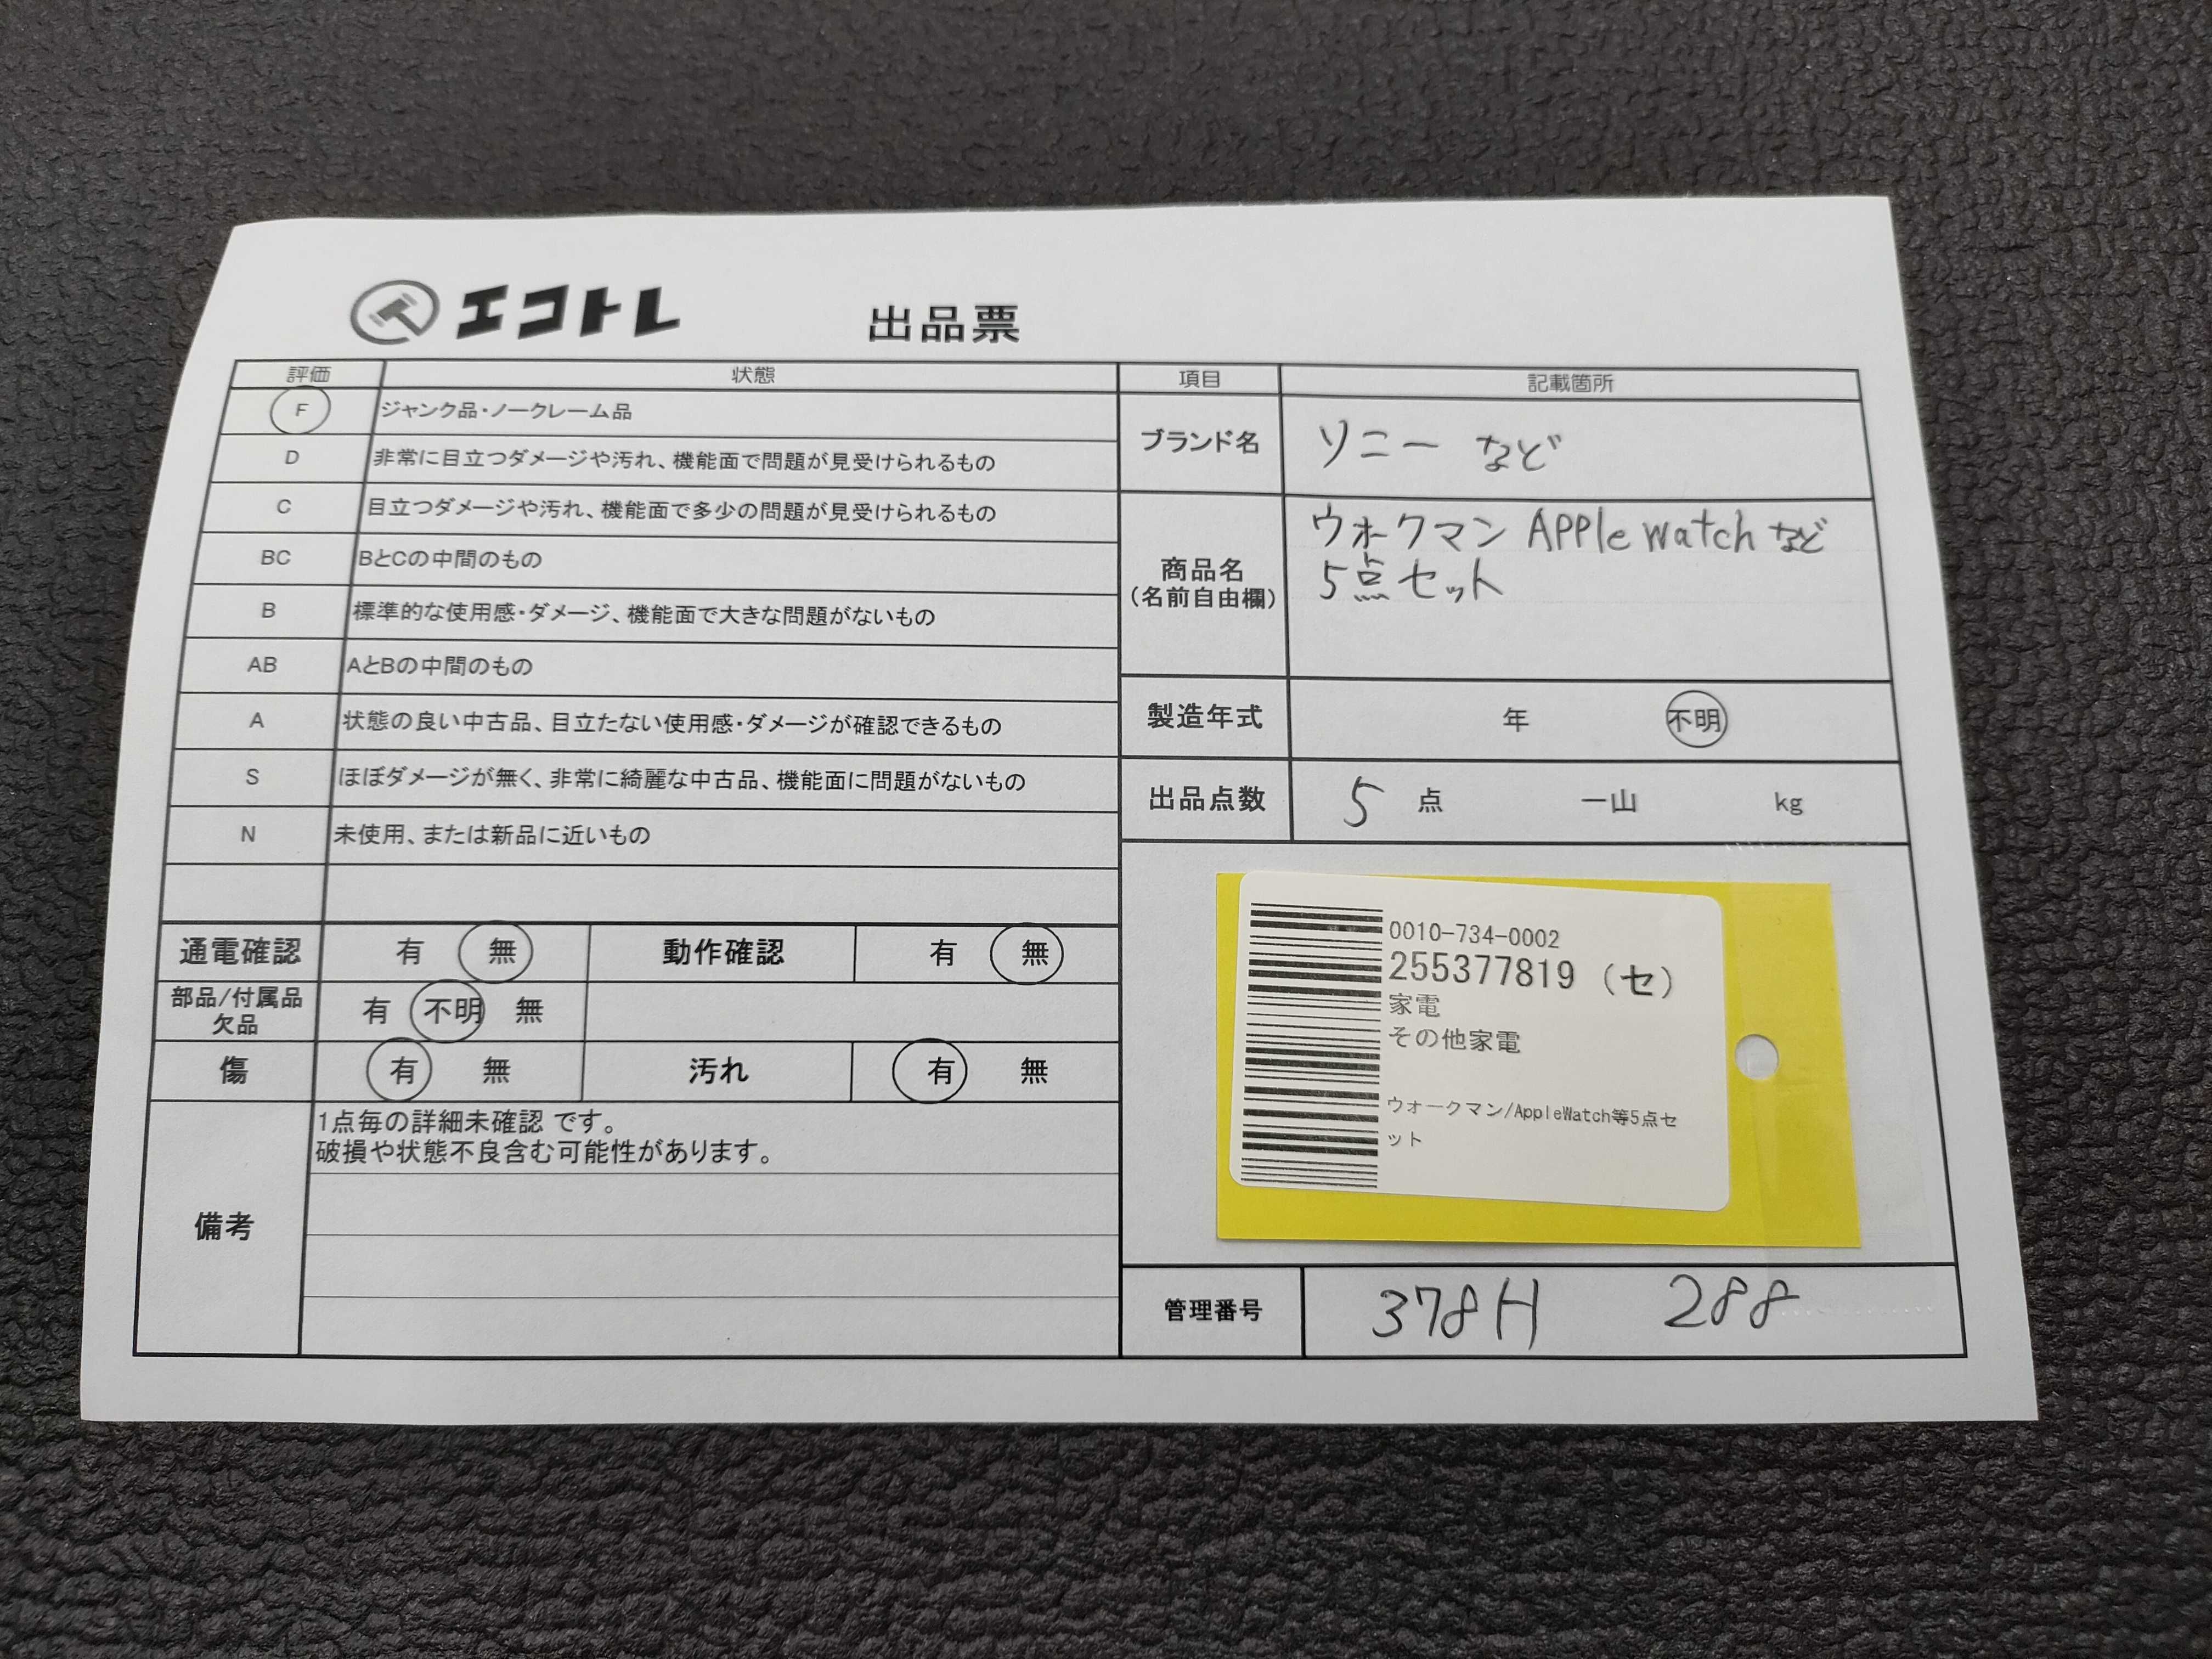 エコトレ
出品票
評価 状態
F ジャンク品・ノークレーム品
D 非常に目立つダメージや汚れ、機能面で問題が見受けられるもの
C 目立つダメージや汚れ、機能面で多少の問題が見受けられるもの
BC BとCの中間のもの
B 標準的な使用感・ダメージ、機能面で大きな問題がないもの
AB AとBの中間のもの
A 状態の良い中古品、目立たない使用感・ダメージが確認できるもの
S ほぼダメージが無く、非常に綺麗な中古品、機能面に問題がないもの
N 未使用、または新品に近いもの
通電確認 有 無 動作確認 有 無
部品/付属品
欠品
有 不明 無
傷 有 無 汚れ 有 無
備考
1点毎の詳細未確認 です。
破損や状態不良含む可能性があります。
項目 記載箇所
ブランド名 ソニー など
商品名
(名前自由欄)
ウォークマン APPle Watch など
5点セット
製造年式 年 不明
出品点数 5 点 一山 kg
0010-734-0002
255377819 (セ)
家電
その他家電
ウォークマン/AppleWatch等5点セ
ット
管理番号 378H 288